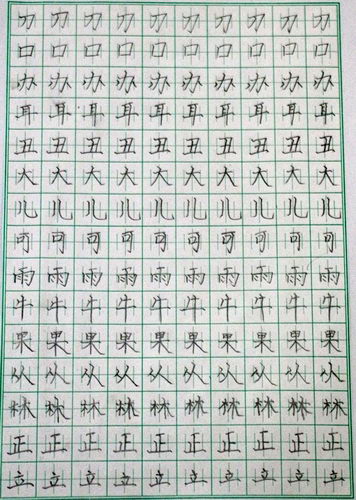 力力力力力力力力力力
口口口口口口口口口口
办办办办办办办办办办
耳耳耳耳耳耳耳耳耳耳
丑丑丑丑丑丑丑丑丑丑
大大大大大大大大大大
儿儿儿儿儿儿儿儿儿儿
可可可可可可可可可可
雨雨雨雨雨雨雨雨雨雨
牛牛牛牛牛牛牛牛牛牛
果果果果果果果果果果
从从从从从从从从从从
林林林林林林林林林林
正正正正正正正正正正
立立立立立立立立立立